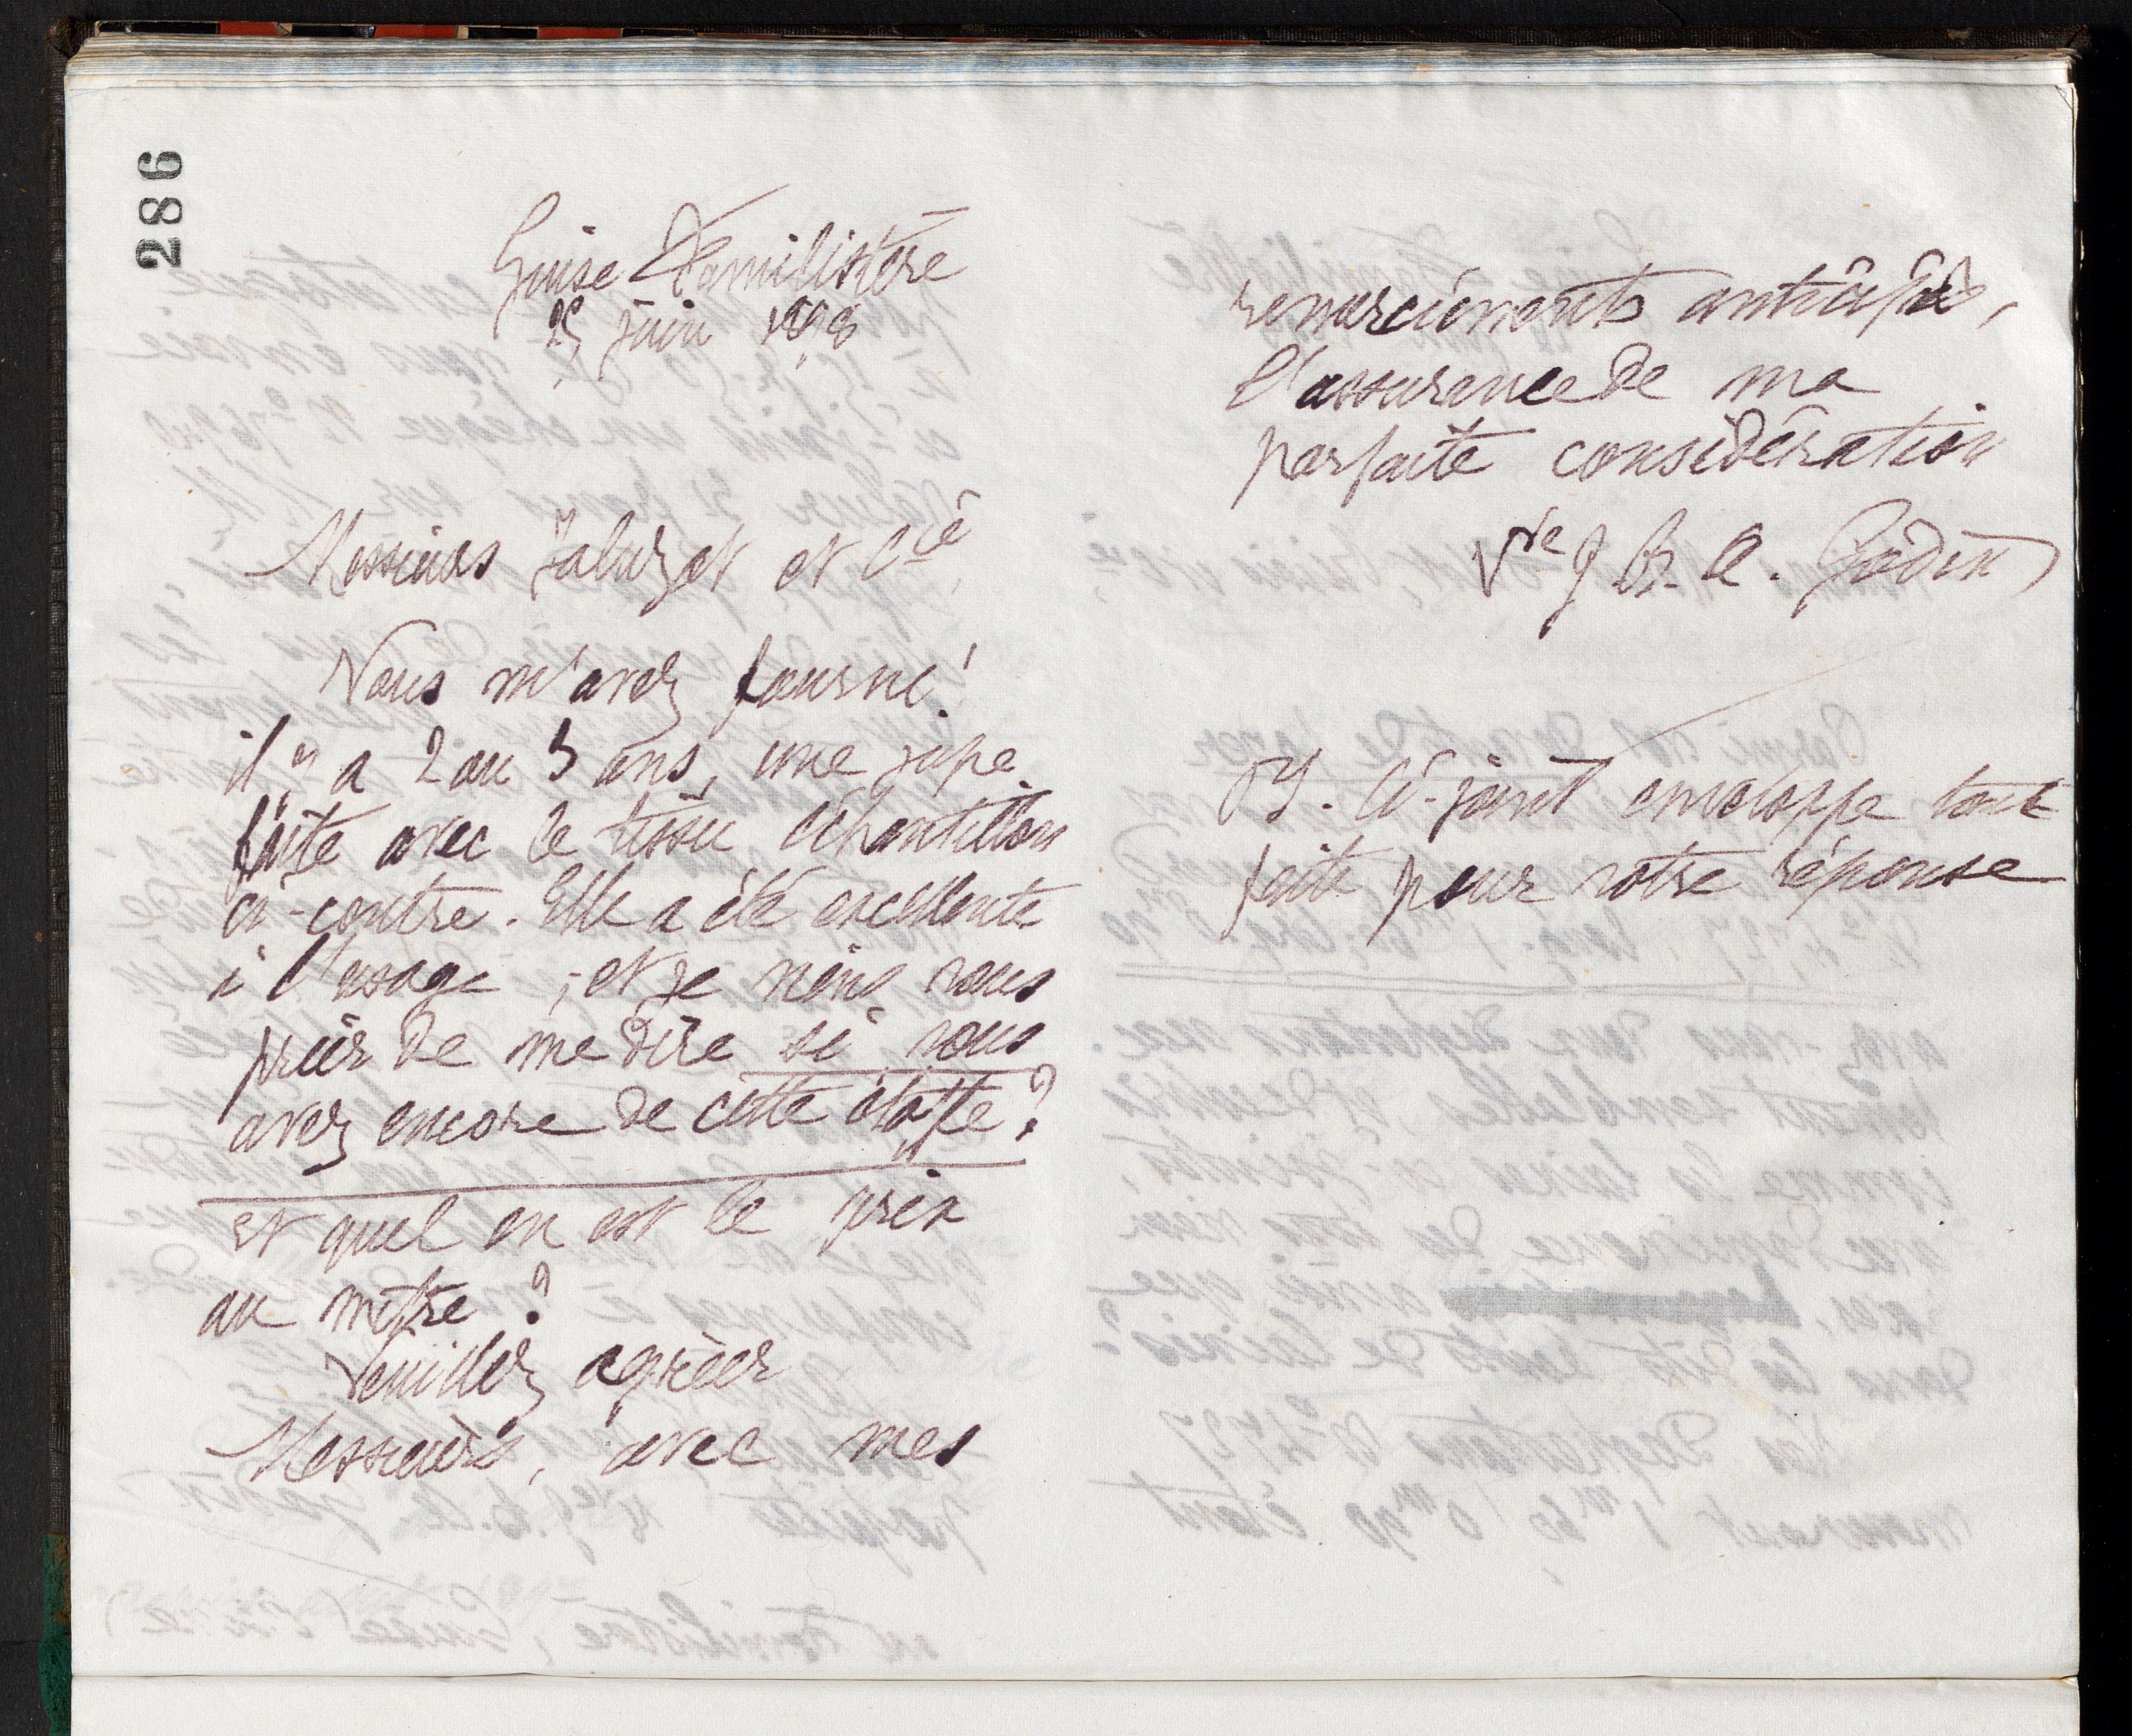 286
Guise Familistère
25 juin 1898
Messieurs Jaluzot et Cie,
Vous m'avez fourni
il y a 2 ou 3 ans, une jupe
faite avec le tissu échantillon
ci-contre. Elle a été excellente
à l'usage ; et je viens vous
prier de me dire si vous
avez encore de cette étoffe ?
et quel en est le prix
au mètre ?
Veuillez agréer
Messieurs, avec mes
remerciements anticipés,
l'assurance de ma
parfaite considération
Vve J. B. A. Godin
PS. Ci-joint enveloppe toute
faite pour votre réponse